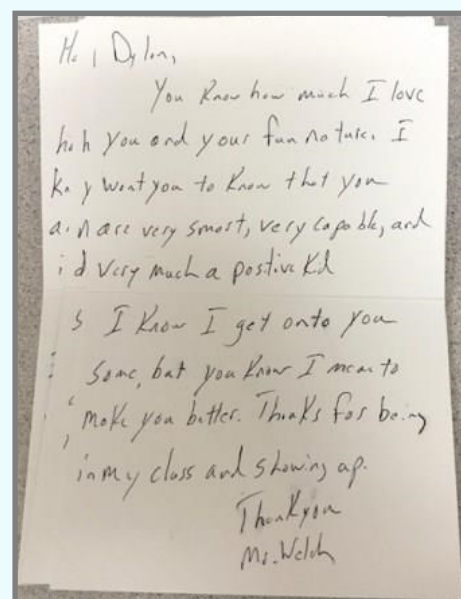 Dylan,
You know how much I love
you and your fun nature. I
want you to know that you
are very smart, very capable, and
very much a postive kid
I know I get onto you
some, but you know I mean to
make you better. Thanks for being
in my class and showing up.
Thank you
Ms. Welch